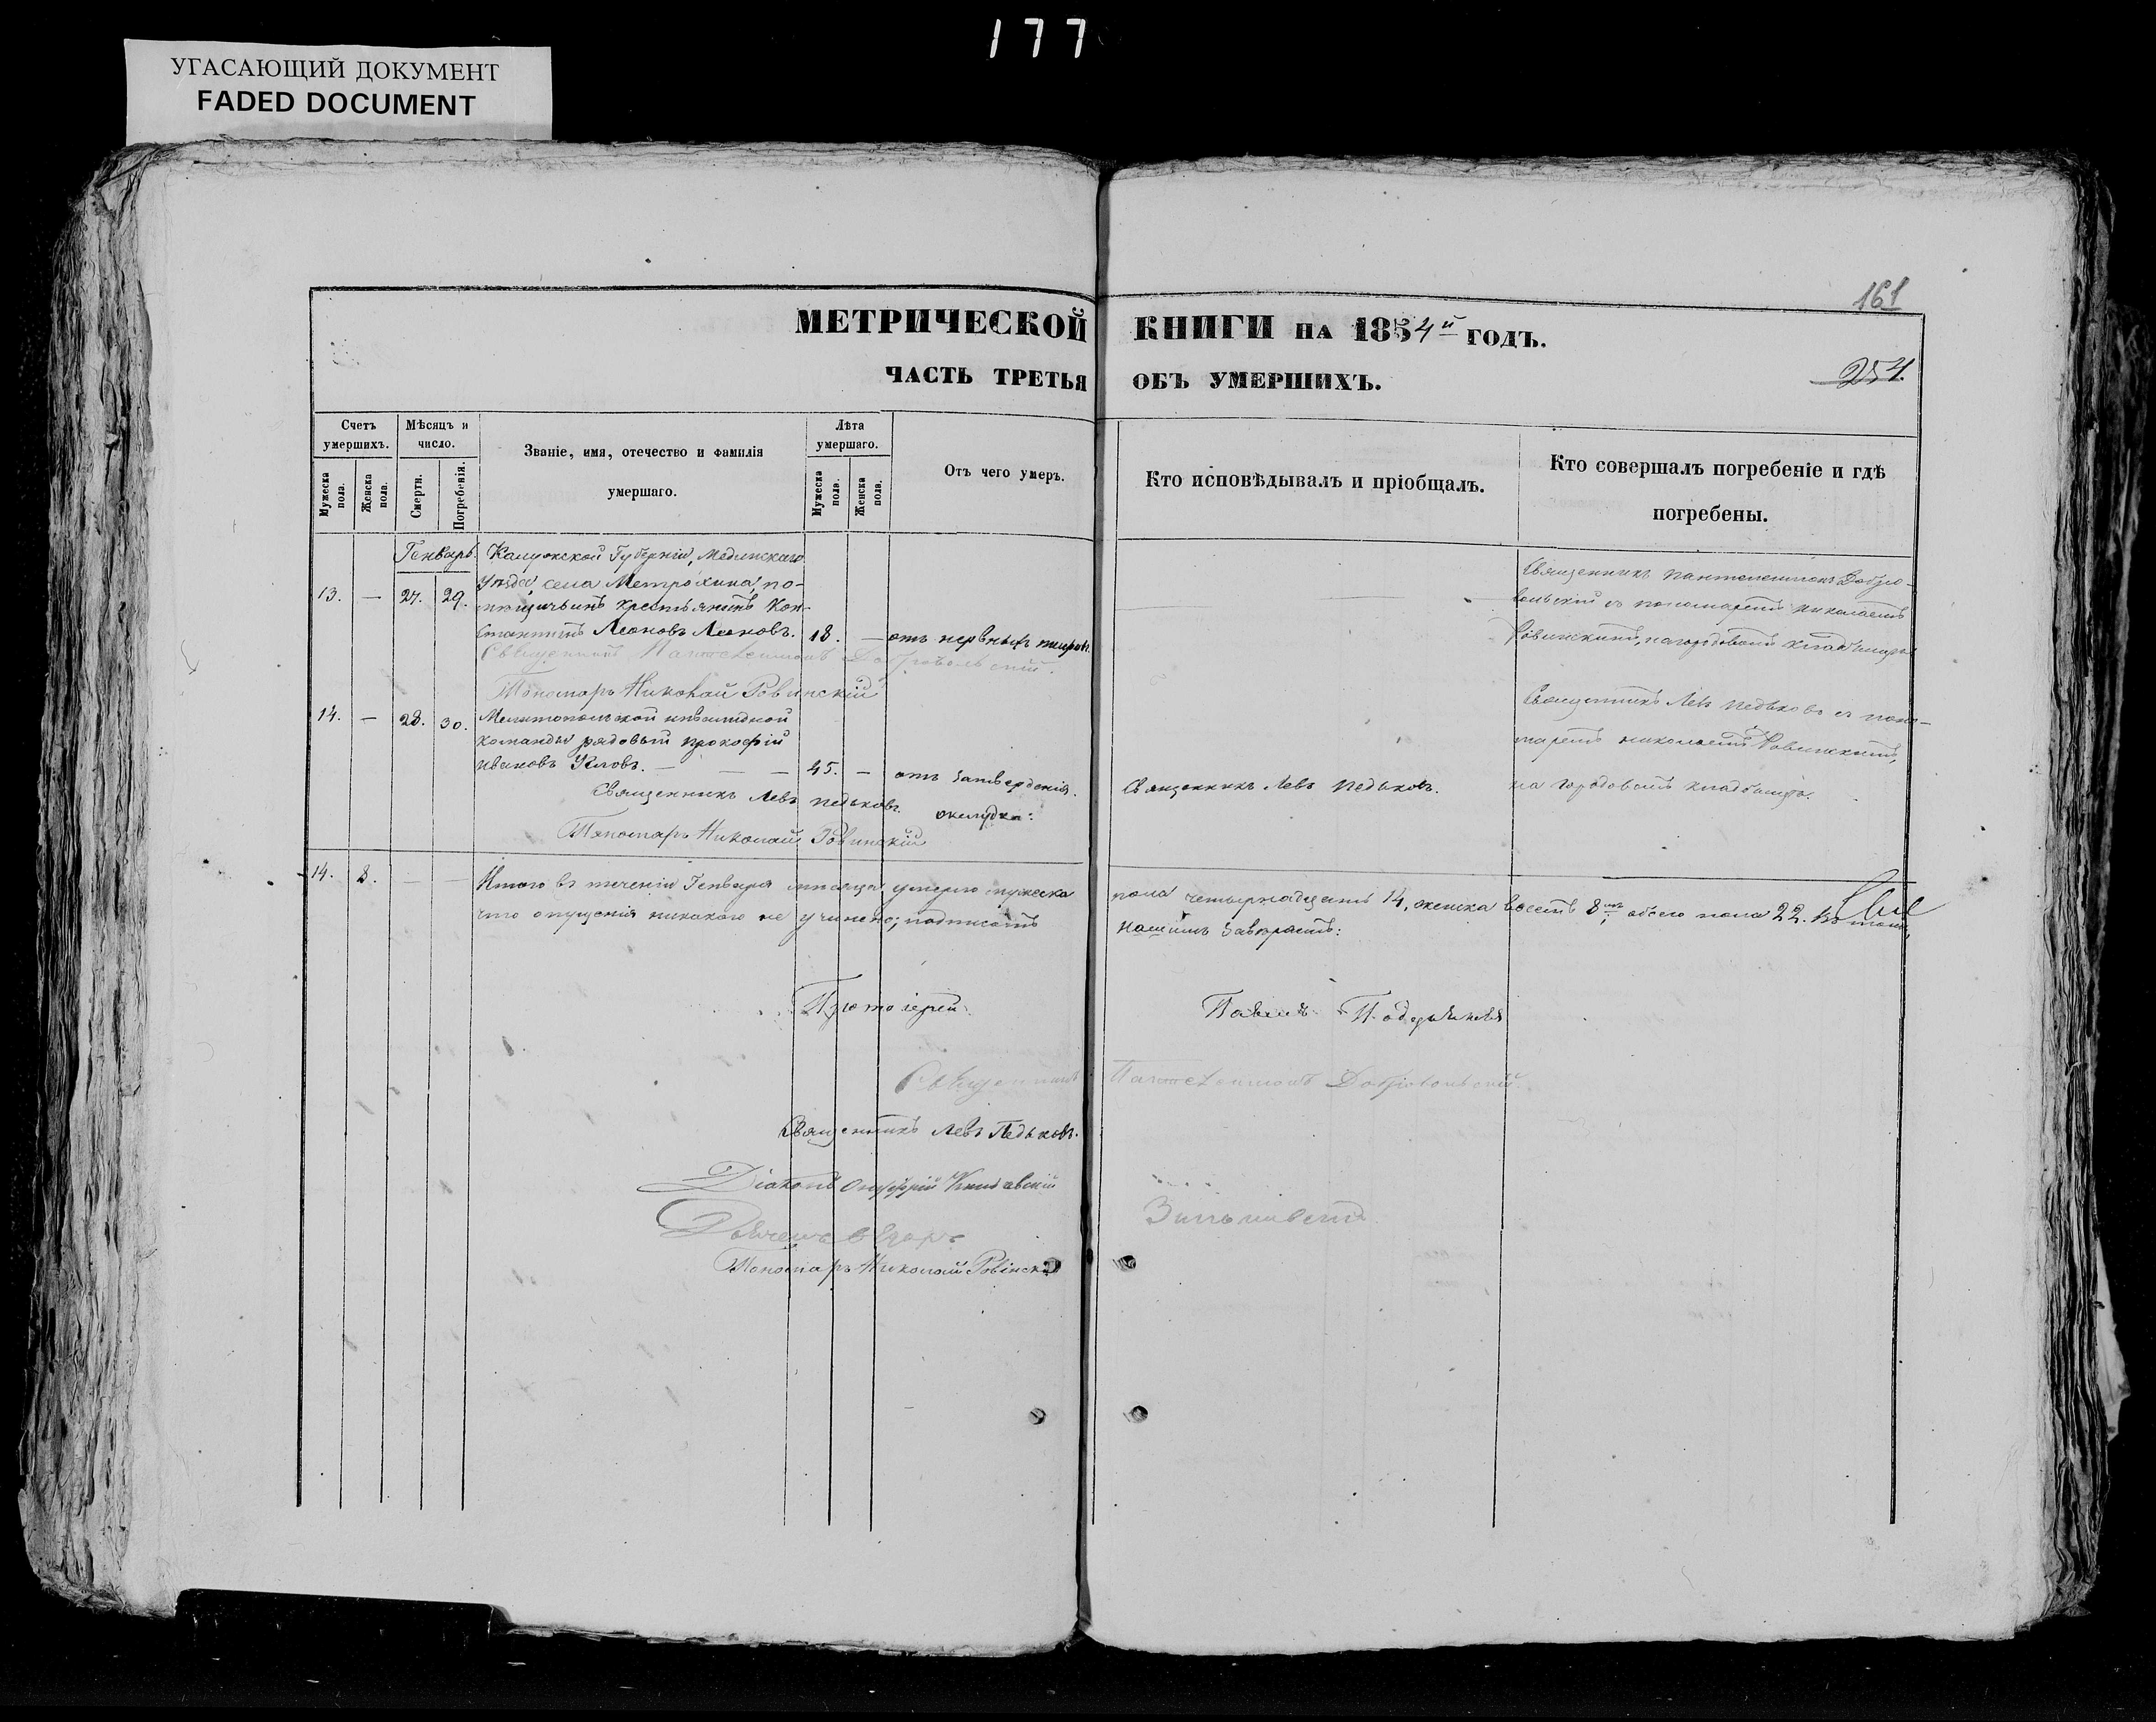 177
УГАСАЮЩИЙ ДОКУМЕНТ
FADED DOCUMENT
161
МЕТРИЧЕСКОЙ КНИГИ НА 1854й ГОДЪ.
254.
ЧАСТЬ ТРЕТЬЯ ОБЪ УМЕРШИХЪ.
Счетъ умершихъ.
Мужеска пола.
Женска пола.
Мѣсяцъ и число.
Смерти.
Погребенія.
Званіе, имя, отечество и фамилія умершаго.
Лѣта умершаго.
Мужеска пола.
Женска пола.
Отъ чего умеръ.
Кто исповѣдывалъ и пріобщалъ.
Кто совершалъ погребеніе и гдѣ погребены.
Генварь.
13. — 27. 29.
Калужской Губерніи, Медынскаго
уѣзда, села Метрохина, по-
мѣщичьинъ крестьянинъ Кон-
стантинъ Леоновъ Леоновъ. 18. — отъ нервныхъ
Священникъ Пантелеимонъ Добровольскій.
Пономарь Николай Ровинскій
Священникъ Пантелеимонъ Добро-
вольскій съ пономаремъ Николаемъ
Ровинскимъ, на городовомъ кладбищѣ
14. — 28. 30.
Мелитопольской инвалидной
команды рядовый Прокофій
Ивановъ — — — 45. — отъ затвердѣнія
Священникъ Левъ Педьковъ. желудка:
Пономарь Николай Ровинскій
Священникъ Левъ Педьковъ.
Священникъ Левъ Педьковъ съ поно-
маремъ Николаемъ Ровинскимъ,
на городовомъ кладбищѣ.
14. 8. — —
Итого въ теченіи Генваря мѣсяца умерло мужеска пола четырнадцать 14, женска восемь 8мь, обоего пола 22. Въ томъ,
что опущенія никакого не учинено; подписомъ нашимъ завѣряемъ:
Протоіерей Павелъ
Священникъ Пантелеимонъ Добровольскій.
Священникъ Левъ Педьковъ.
Діаконъ Онуфрій
Пономарь Николай Ровінскій